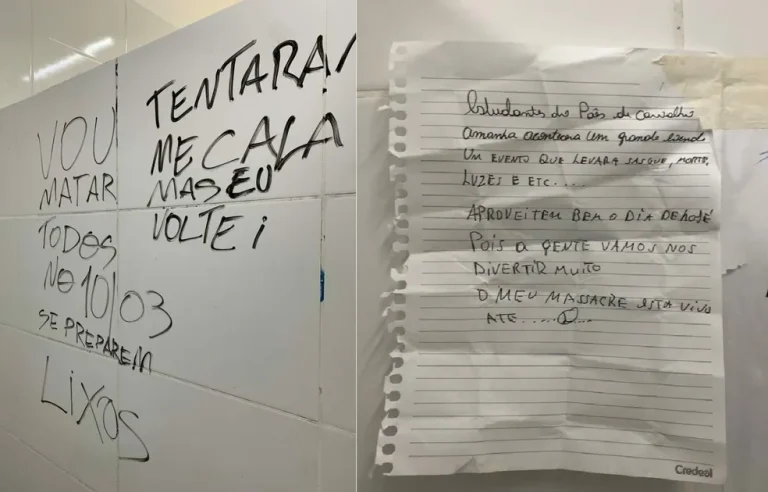 VOU
MATAR
TODOS
NO 10/03
SE PREPAREM
LIXOS
TENTARA
ME CALA
MAS EU
VOLTE i
Estudantes do Paes de carvalho
amanha acontecera um grande evento
UM EVENTO QUE LEVARA SAGUE, MORTE,
LUZES E ETC....
APROVEITEM BEM O DIA DE HOJE
POIS A GENTE VAMOS NOS
DIVERTIR MUITO
O MEU MASSACRE ESTA VIVO
ATE.....
Credeal